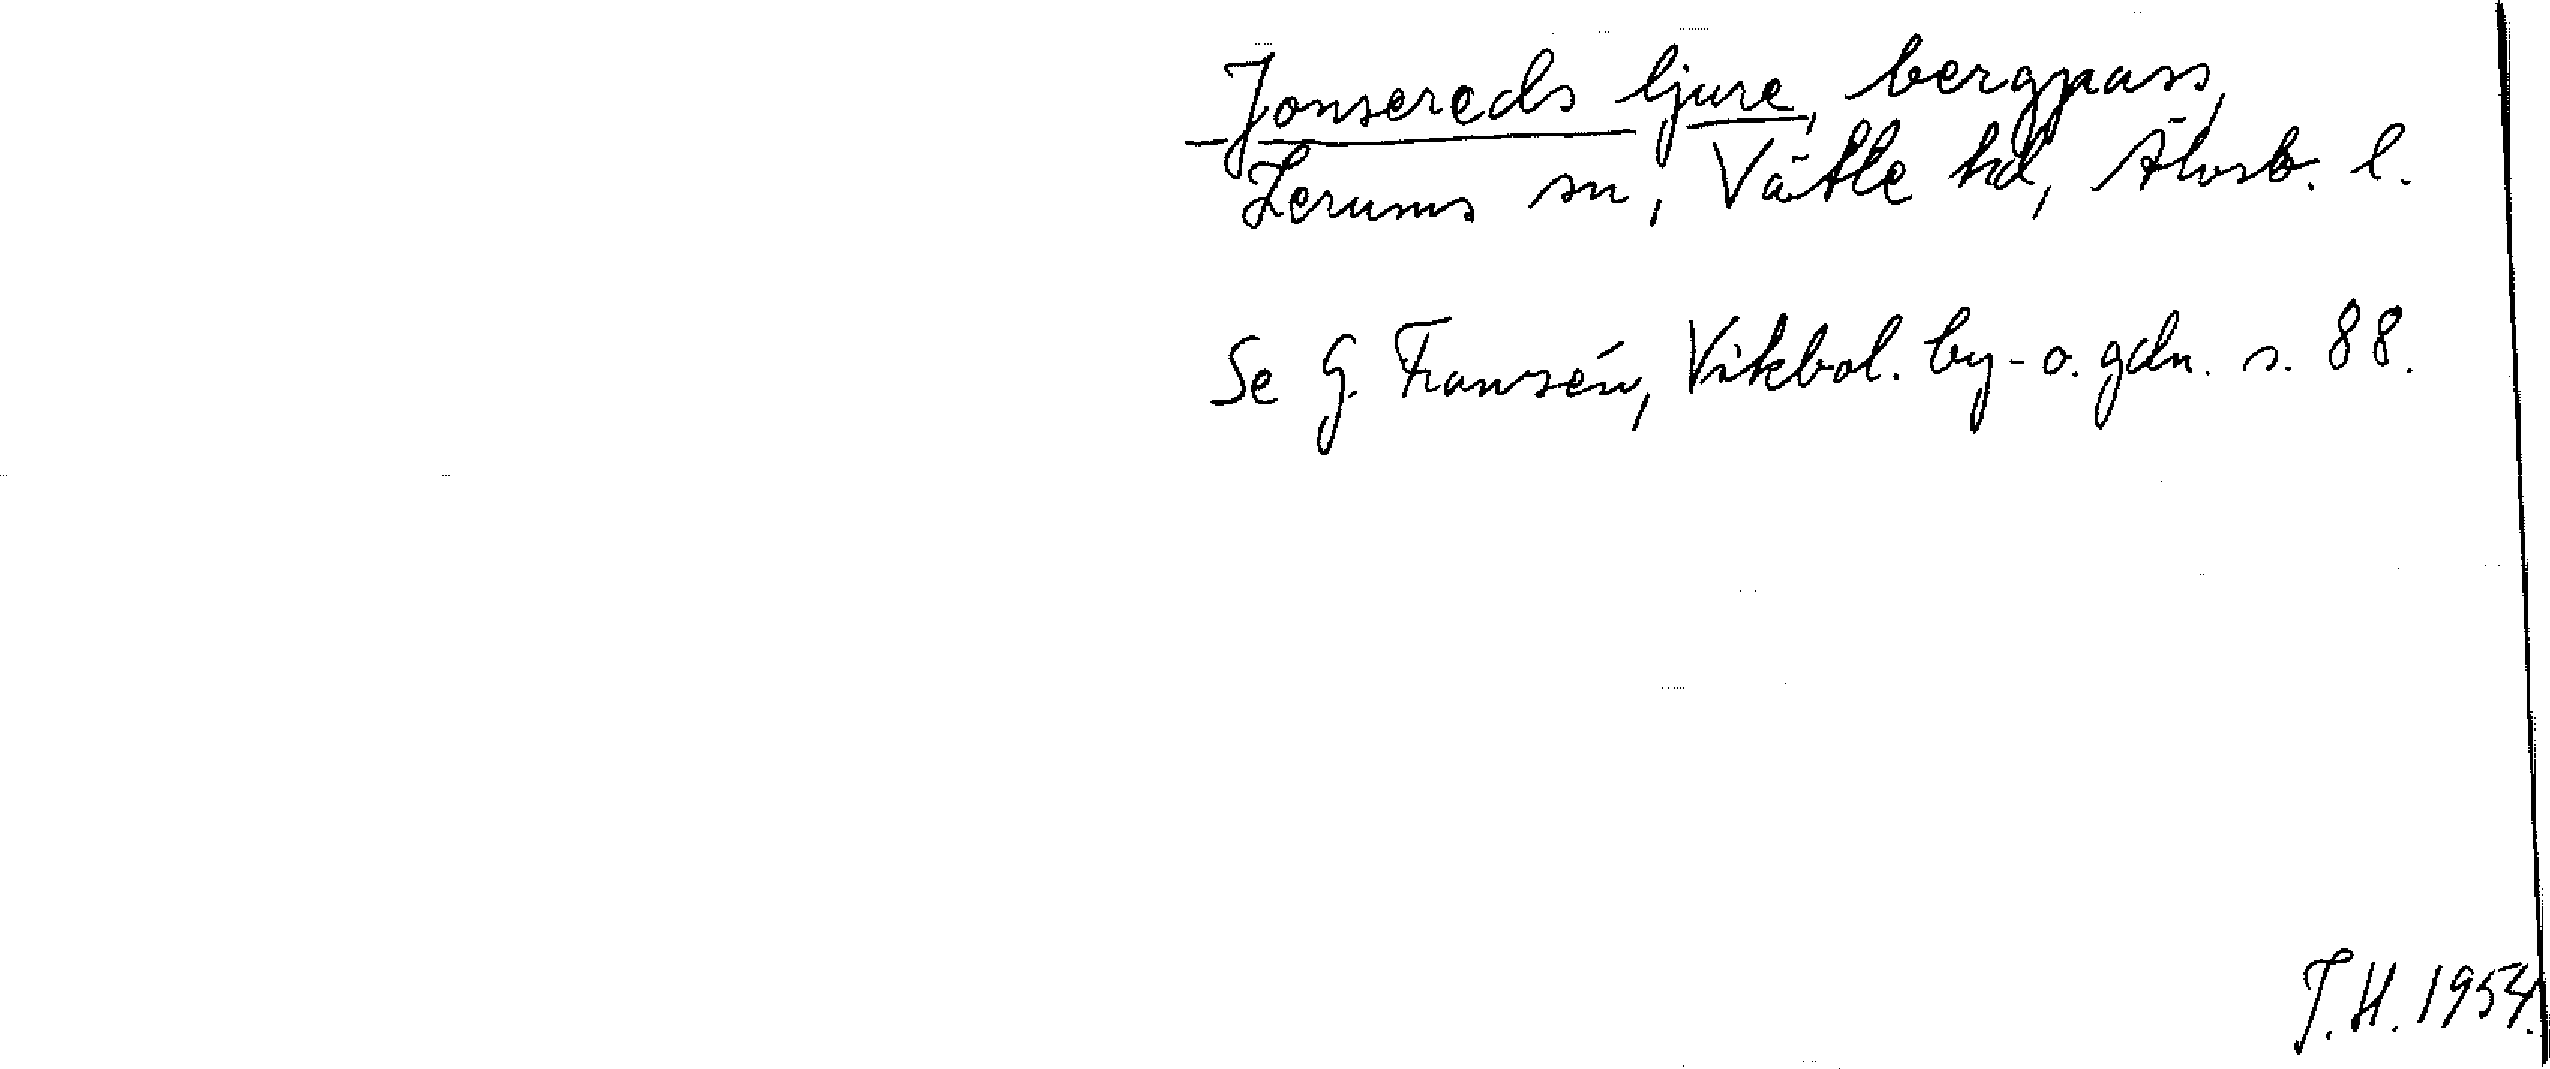 Jonsereds ljure, bergpass,
Lerums sn, Vättle hd, Älvsb. l.
Se G. Franzén, Vikbol. by- o. gdn. s. 88.
T.H. 1954.